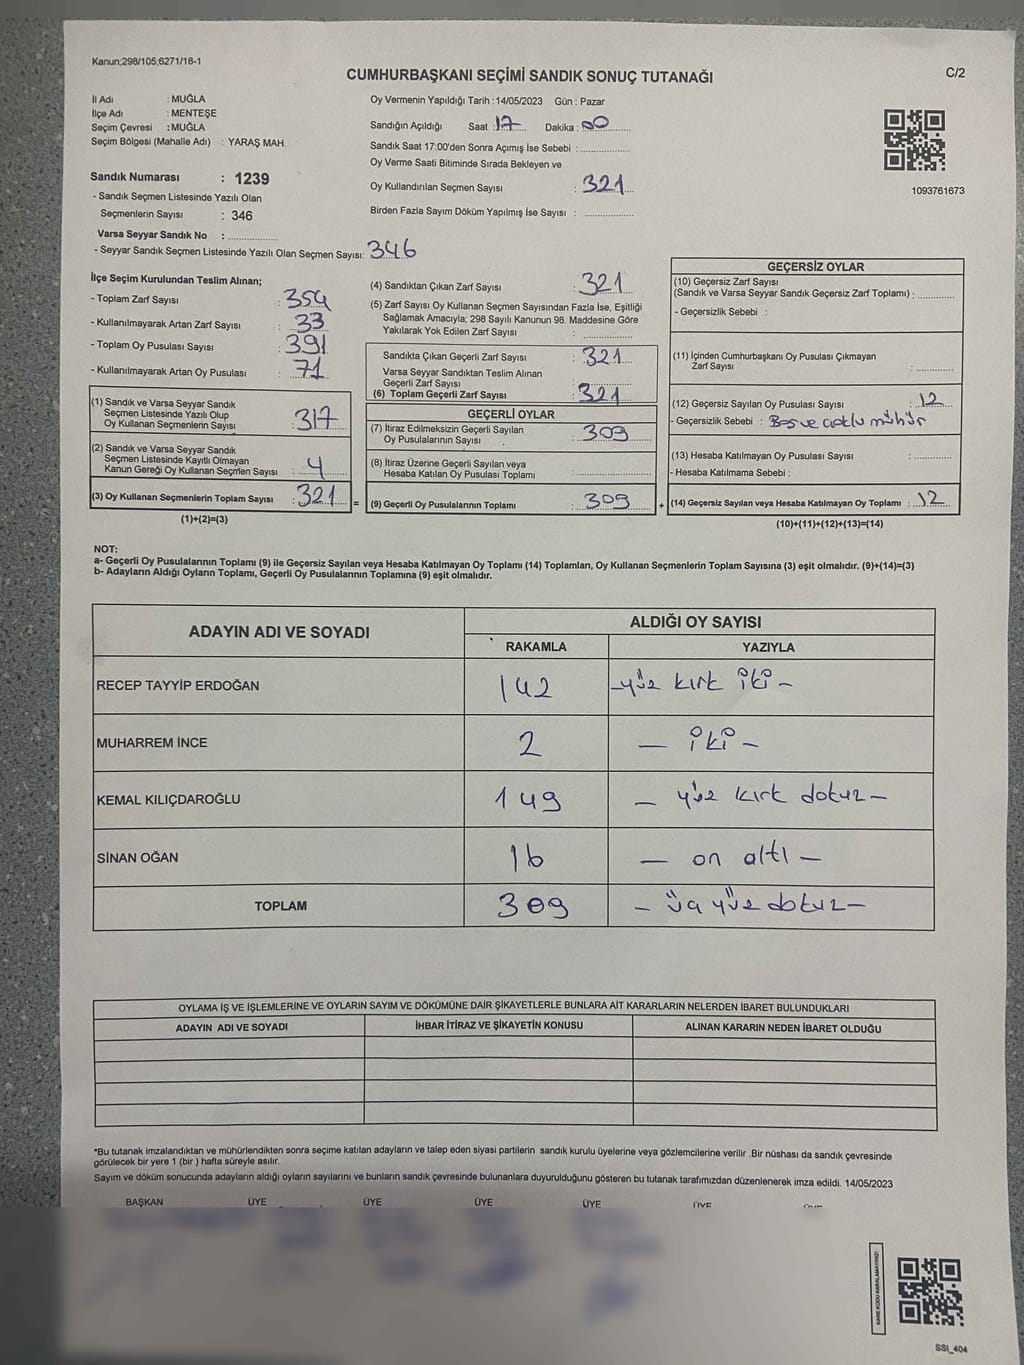 Kanun;298/105;6271/18-1
CUMHURBAŞKANI SEÇİMİ SANDIK SONUÇ TUTANAĞI
C/2
İl Adı : MUĞLA
İlçe Adı : MENTEŞE
Seçim Çevresi : MUĞLA
Seçim Bölgesi (Mahalle Adı) : YARAŞ MAH.
Sandık Numarası : 1239
- Sandık Seçmen Listesinde Yazılı Olan
Seçmenlerin Sayısı : 346
Varsa Seyyar Sandık No : ................
- Seyyar Sandık Seçmen Listesinde Yazılı Olan Seçmen Sayısı: 346
Oy Vermenin Yapıldığı Tarih :14/05/2023 Gün : Pazar
Sandığın Açıldığı Saat : 17 Dakika : 00
Sandık Saat 17:00'den Sonra Açımış İse Sebebi : ................
Oy Verme Saati Bitiminde Sırada Bekleyen ve
Oy Kullandırılan Seçmen Sayısı : 321
Birden Fazla Sayım Döküm Yapılmış İse Sayısı : ................
1093761673
İlçe Seçim Kurulundan Teslim Alınan;
- Toplam Zarf Sayısı : 354
- Kullanılmayarak Artan Zarf Sayısı : 33
- Toplam Oy Pusulası Sayısı : 391
- Kullanılmayarak Artan Oy Pusulası : 71
(1) Sandık ve Varsa Seyyar Sandık
Seçmen Listesinde Yazılı Olup
Oy Kullanan Seçmenlerin Sayısı : 317
(2) Sandık ve Varsa Seyyar Sandık
Seçmen Listesinde Kayıtlı Olmayan
Kanun Gereği Oy Kullanan Seçmen Sayısı : 4
(3) Oy Kullanan Seçmenlerin Toplam Sayısı : 321 =
(1)+(2)=(3)
(4) Sandıktan Çıkan Zarf Sayısı : 321
(5) Zarf Sayısı Oy Kullanan Seçmen Sayısından Fazla İse, Eşitliği
Sağlamak Amacıyla; 298 Sayılı Kanunun 98. Maddesine Göre
Yakılarak Yok Edilen Zarf Sayısı : ................
Sandıkta Çıkan Geçerli Zarf Sayısı : 321
Varsa Seyyar Sandıktan Teslim Alınan
Geçerli Zarf Sayısı : ................
(6) Toplam Geçerli Zarf Sayısı : 321
GEÇERLİ OYLAR
(7) İtiraz Edilmeksizin Geçerli Sayılan
Oy Pusulalarının Sayısı : 309
(8) İtiraz Üzerine Geçerli Sayılan veya
Hesaba Katılan Oy Pusulası Toplamı : ................
(9) Geçerli Oy Pusulalarının Toplamı : 309 +
GEÇERSİZ OYLAR
(10) Geçersiz Zarf Sayısı
(Sandık ve Varsa Seyyar Sandık Geçersiz Zarf Toplamı) : ............
- Geçersizlik Sebebi :
(11) İçinden Cumhurbaşkanı Oy Pusulası Çıkmayan
Zarf Sayısı : ............
(12) Geçersiz Sayılan Oy Pusulası Sayısı : 12
- Geçersizlik Sebebi : Boş ve çoklu mühür
(13) Hesaba Katılmayan Oy Pusulası Sayısı : ............
- Hesaba Katılmama Sebebi :
(14) Geçersiz Sayılan veya Hesaba Katılmayan Oy Toplamı : 12
(10)+(11)+(12)+(13)=(14)
NOT:
a- Geçerli Oy Pusulalarının Toplamı (9) ile Geçersiz Sayılan veya Hesaba Katılmayan Oy Toplamı (14) Toplamları, Oy Kullanan Seçmenlerin Toplam Sayısına (3) eşit olmalıdır. (9)+(14)=(3)
b- Adayların Aldığı Oyların Toplamı, Geçerli Oy Pusulalarının Toplamına (9) eşit olmalıdır.
ADAYIN ADI VE SOYADI ALDIĞI OY SAYISI
RAKAMLA YAZIYLA
RECEP TAYYİP ERDOĞAN 142 -yüz kırk iki-
MUHARREM İNCE 2 - iki -
KEMAL KILIÇDAROĞLU 149 - yüz kırk dokuz -
SİNAN OĞAN 16 - on altı -
TOPLAM 309 - üç yüz dokuz -
OYLAMA İŞ VE İŞLEMLERİNE VE OYLARIN SAYIM VE DÖKÜMÜNE DAİR ŞİKAYETLERLE BUNLARA AİT KARARLARIN NELERDEN İBARET BULUNDUKLARI
ADAYIN ADI VE SOYADI İHBAR İTİRAZ VE ŞİKAYETİN KONUSU ALINAN KARARIN NEDEN İBARET OLDUĞU
*Bu tutanak imzalandıktan ve mühürlendikten sonra seçime katılan adayların ve talep eden siyasi partilerin sandık kurulu üyelerine veya gözlemcilerine verilir .Bir nüshası da sandık çevresinde
görülecek bir yere 1 (bir ) hafta süreyle asılır.
Sayım ve döküm sonucunda adayların aldığı oyların sayılarını ve bunların sandık çevresinde bulunanlara duyurulduğunu gösteren bu tutanak tarafımızdan düzenlenerek imza edildi. 14/05/2023
BAŞKAN ÜYE ÜYE ÜYE ÜYE ÜYE
KARE KODU KARALAMAYINIZ!
SSI_404